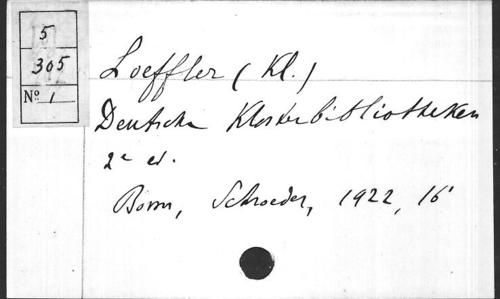 5
305
Nº 1
Loeffler (Kl.)
Deutsche Klosterbibliotheken
2e ed.
Bonn, Schroeder, 1922, 16°